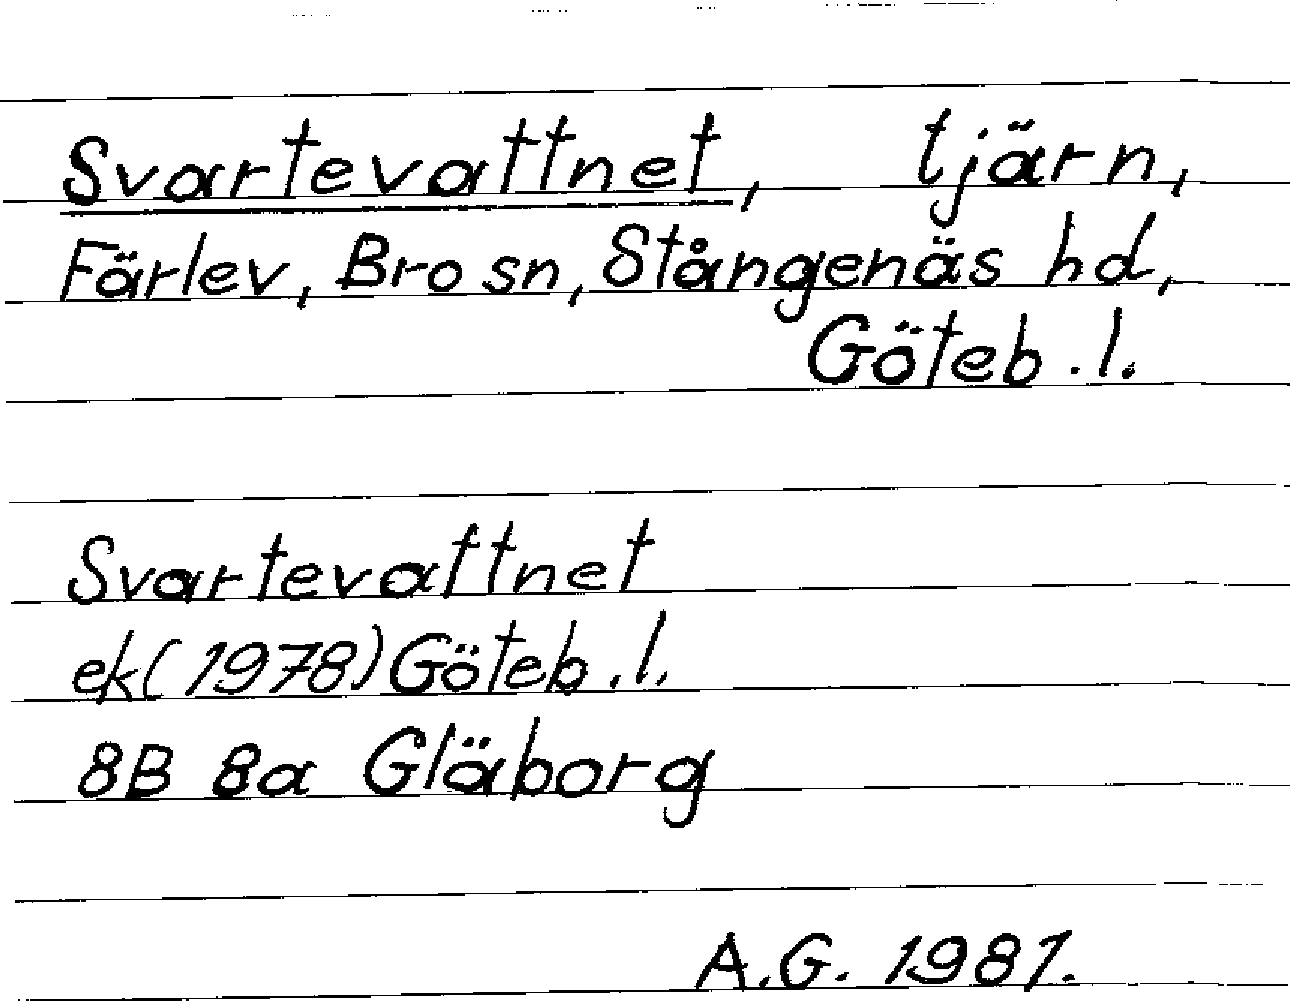 Svartevattnet, tjärn,
Färlev, Bro sn, Stångenäs hd,
Göteb. l.
Svartevattnet
ek (1978) Göteb. l.
8B 8a Gläborg
A.G. 1981.